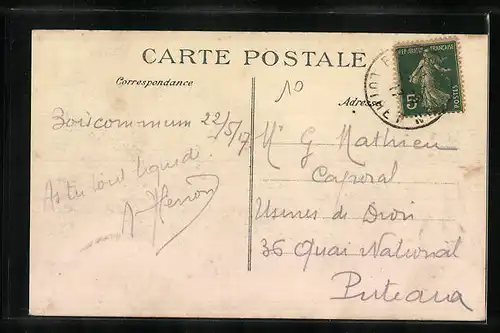 CARTE POSTALE
Correspondance
Adresse
10
REPUBLIQUE FRANÇAISE
5c
POSTES
LOIRET
Boiscommun 22/5/17
As tu tout liquidé.
Mr G Mathieu
Caporal
Usines de Dion
36 Quai National
Puteaux